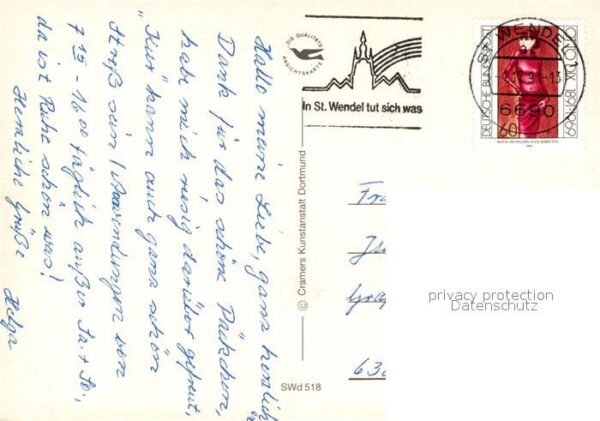 Hallo meine Liebe, ganz herzlich
Dank für das schöne Päckchen,
habe mich riesig darüber gefreut.
"Kur" kann auch ganz schön
Streß sein! Anwendungen von
7 15 - 16 00 täglich außer Sa. + So.,
da ist Ruhe schön was!
Herzliche Grüße
Helga
DIE QUALITÄTS
ANSICHTSKARTE
In St. Wendel tut sich was
ST WENDEL
6690
DEUTSCHE BUNDESPOST
60
© Cramers Kunstanstalt Dortmund
SWd 518
privacy protection
Datenschutz